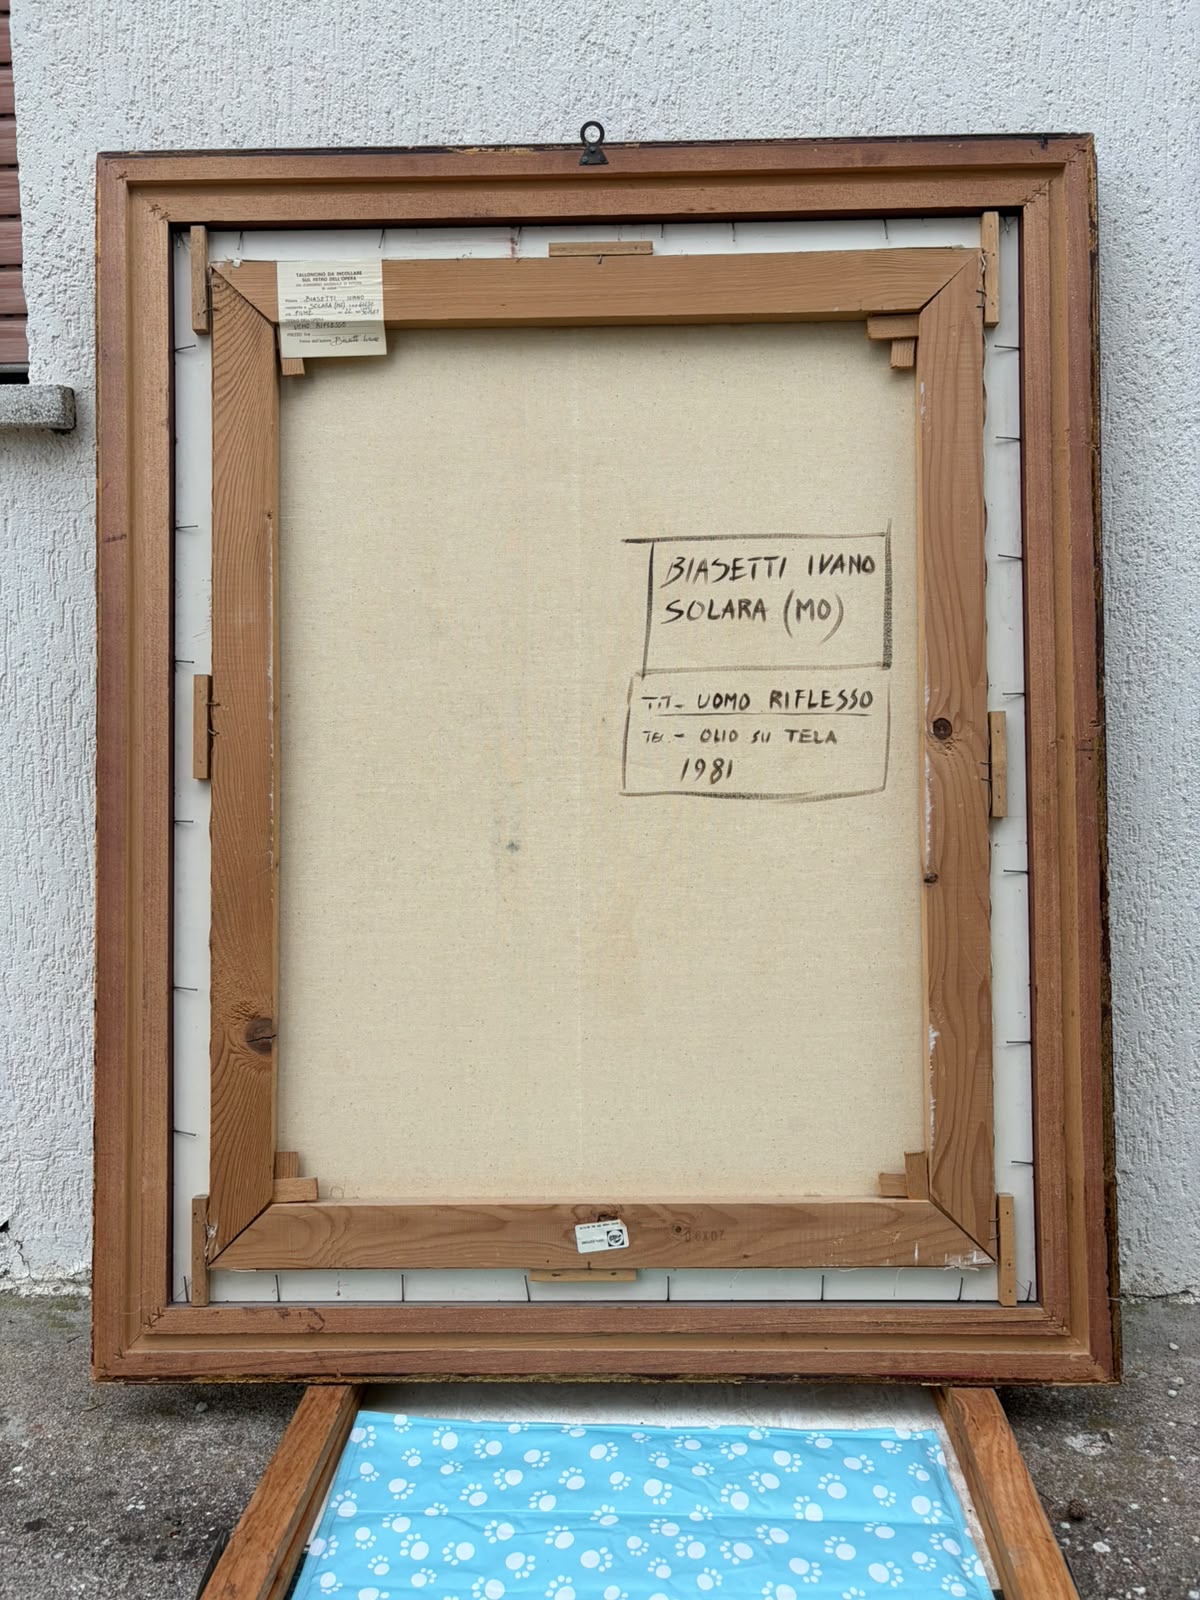 TALLONCINO DA INCOLLARE
SUL RETRO DELL'OPERA
Pittore BIASETTI IVANO
residente a SOLARA (MO)
via FIUME 22
TITOLO DELL'OPERA
UOMO RIFLESSO
PREZZO lire
Firma dell'autore Biasetti Ivano
BIASETTI IVANO
SOLARA (MO)
TIT- UOMO RIFLESSO
TEC - OLIO SU TELA
1981
70X90